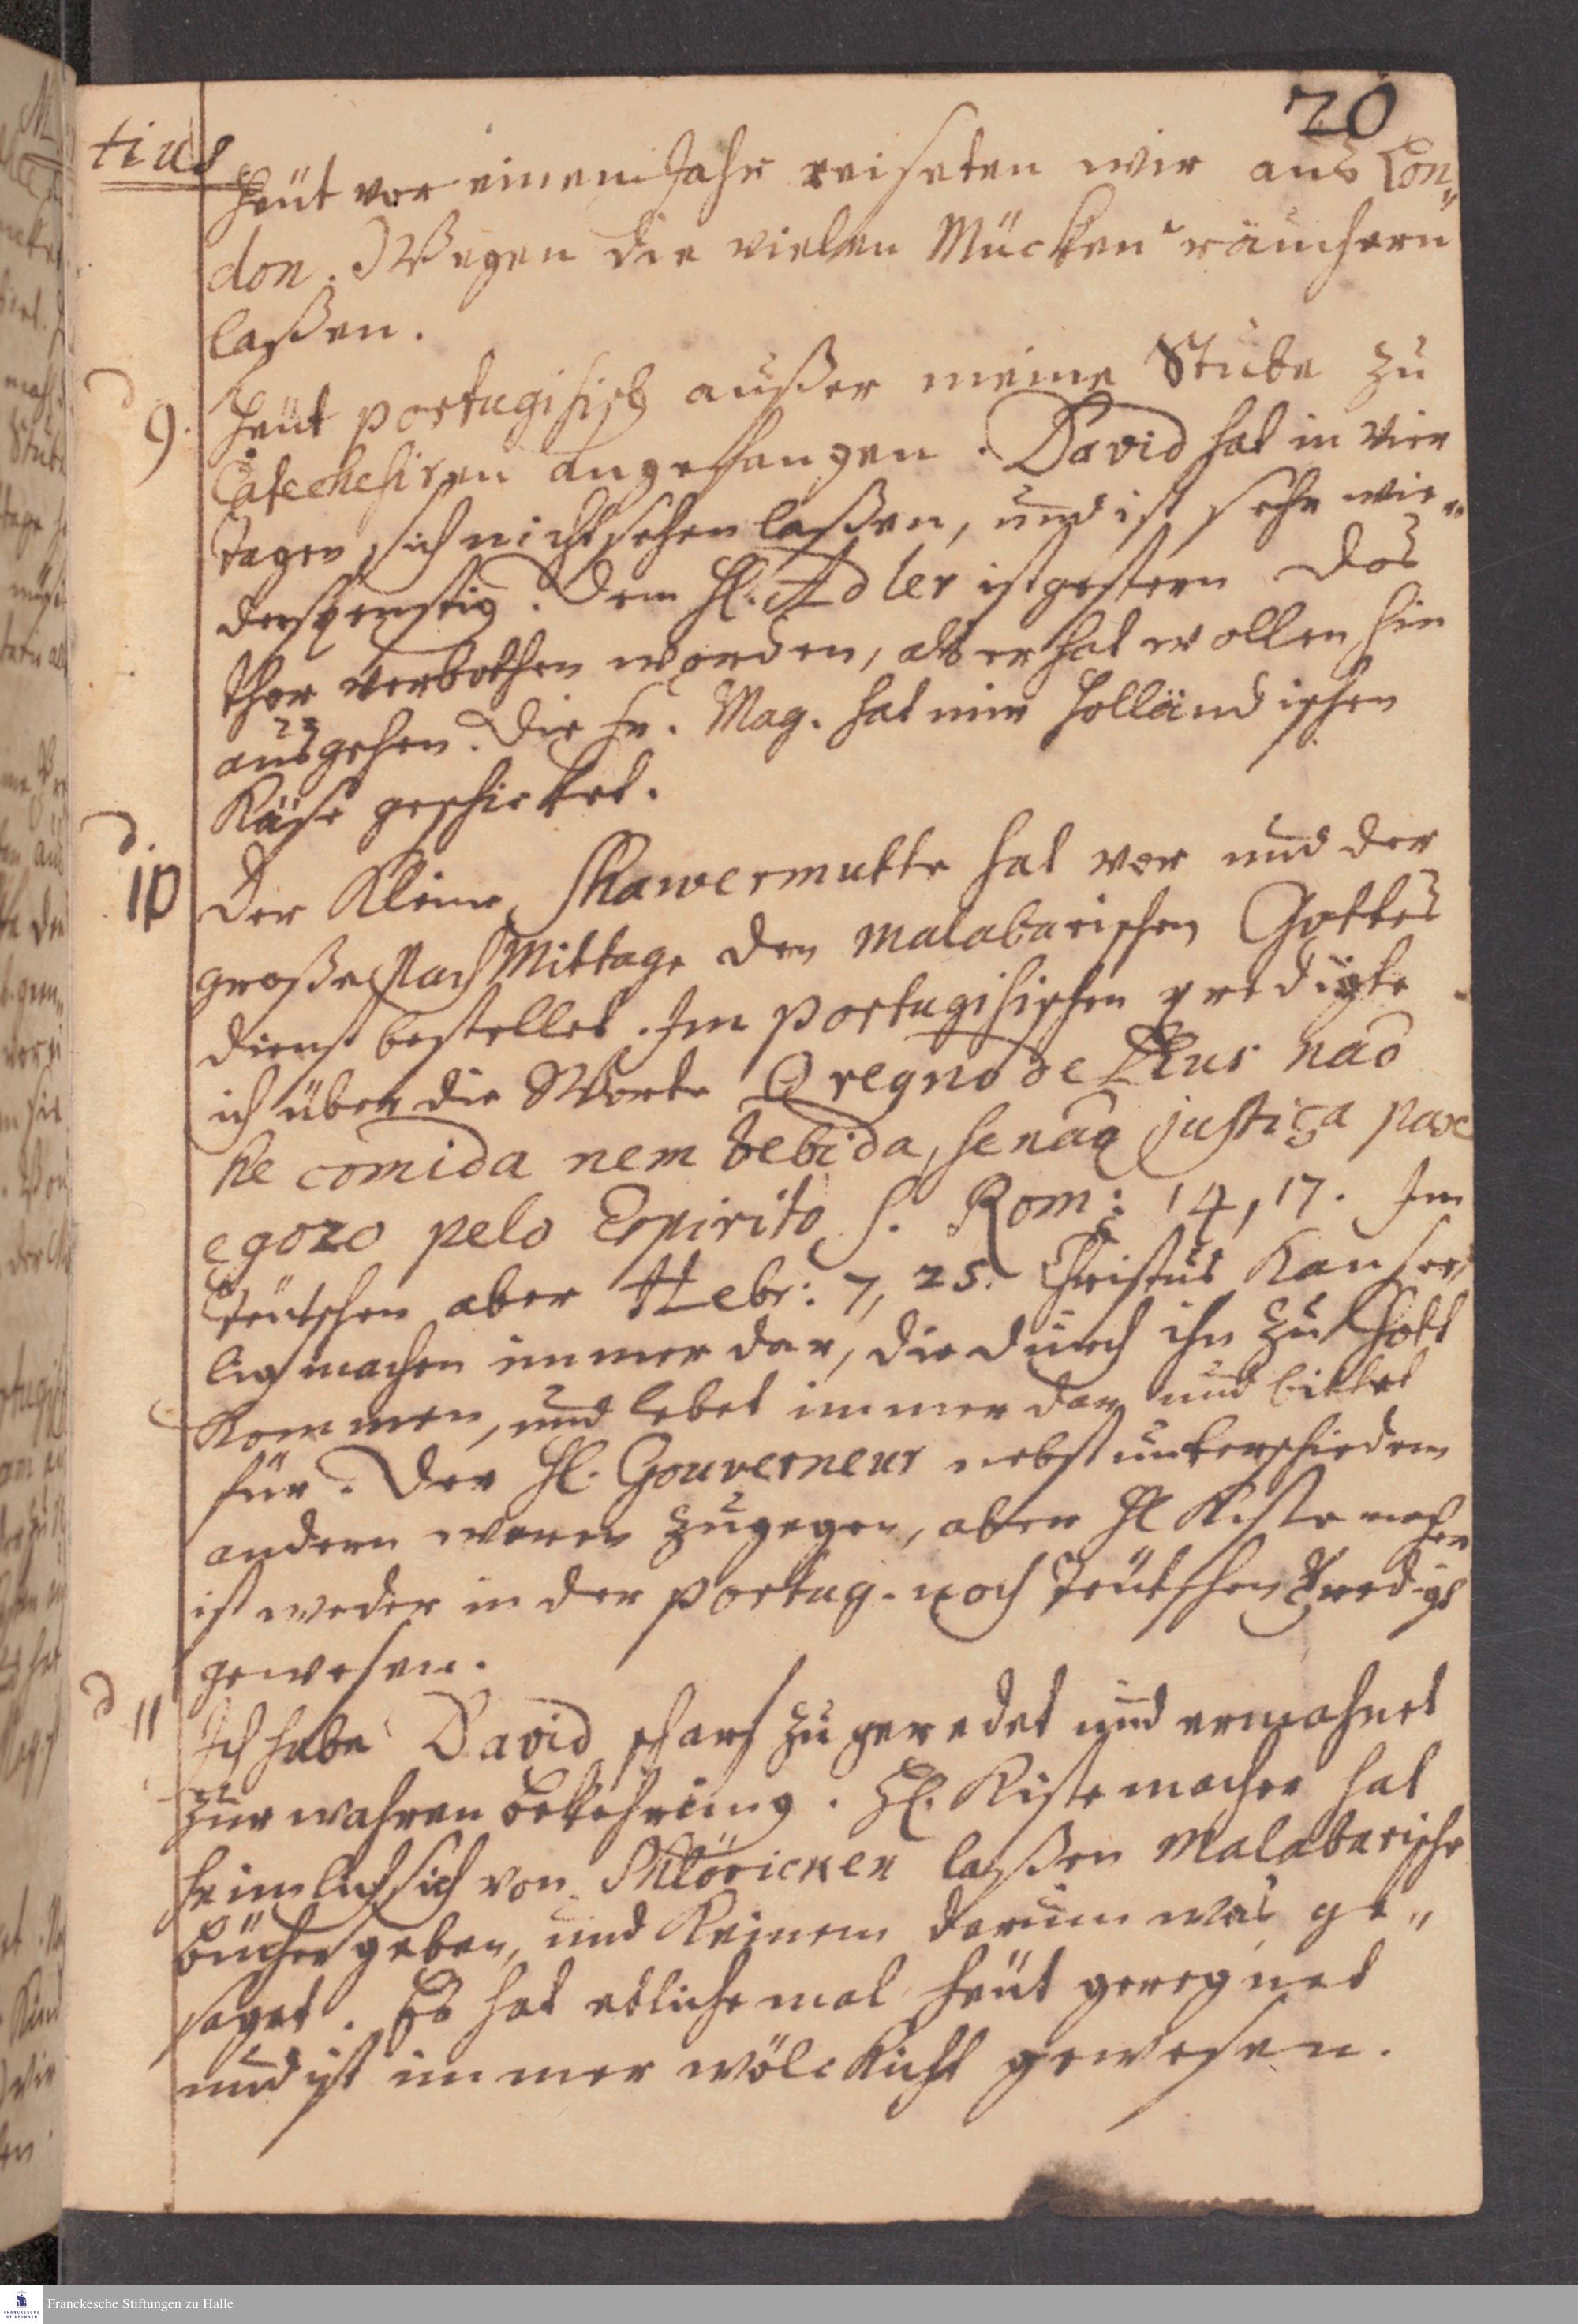 20
tius
Heüt vor einem Jahr reiseten wir aus Lon„
don. Wegen die vielen Mücken räuchern
laßen.
9. Heüt portugisisch außer meine Stube zu
Catechesiren angefangen. David hat in vier
Tagen sich nicht sehen laßen, und ist sehr wie„
derspenstig. Dem H. Adler ist gestern das
Thor verbothen worden, als er hat wollen hin
ausgehen. Die Fr. Mag. hat mir Holländischen
Käse geschicket.
10 Der Kleine Schawermutte hat vor und der
große Nach Mittage den Malabarischen Gottes
dienst bestellet. Im Portugisischen predigte
ich über die Worte O regno de Deus naõ
he comida nem bebida, senaõ justiça paxe
e gozo pelo Espirito S. Rom: 14, 17. Im
Teütschen aber Hebr: 7, 25. Christus kan see,
lig machen immerdar, die durch ihn zu Gott
kommen, und lebet immerdar und bittet
für. Der H. Gouverneur nebst unterschiedenen
andern waren zugegen, aber H Kistemacher
ist weder in der portug. noch Teütschen Predigt
gewesen.
11 Ich habe David scharf zu geredet und ermahnet
zur wahren Bekehrung. H. Kistemacher hat
heimlich sich von laßen Malabarische
Bücher geben, und keinem darum was ge„
saget. Es hat etliche mal heüt geregnet
und ist immer wölckicht gewesen.
Franckesche Stiftungen zu Halle